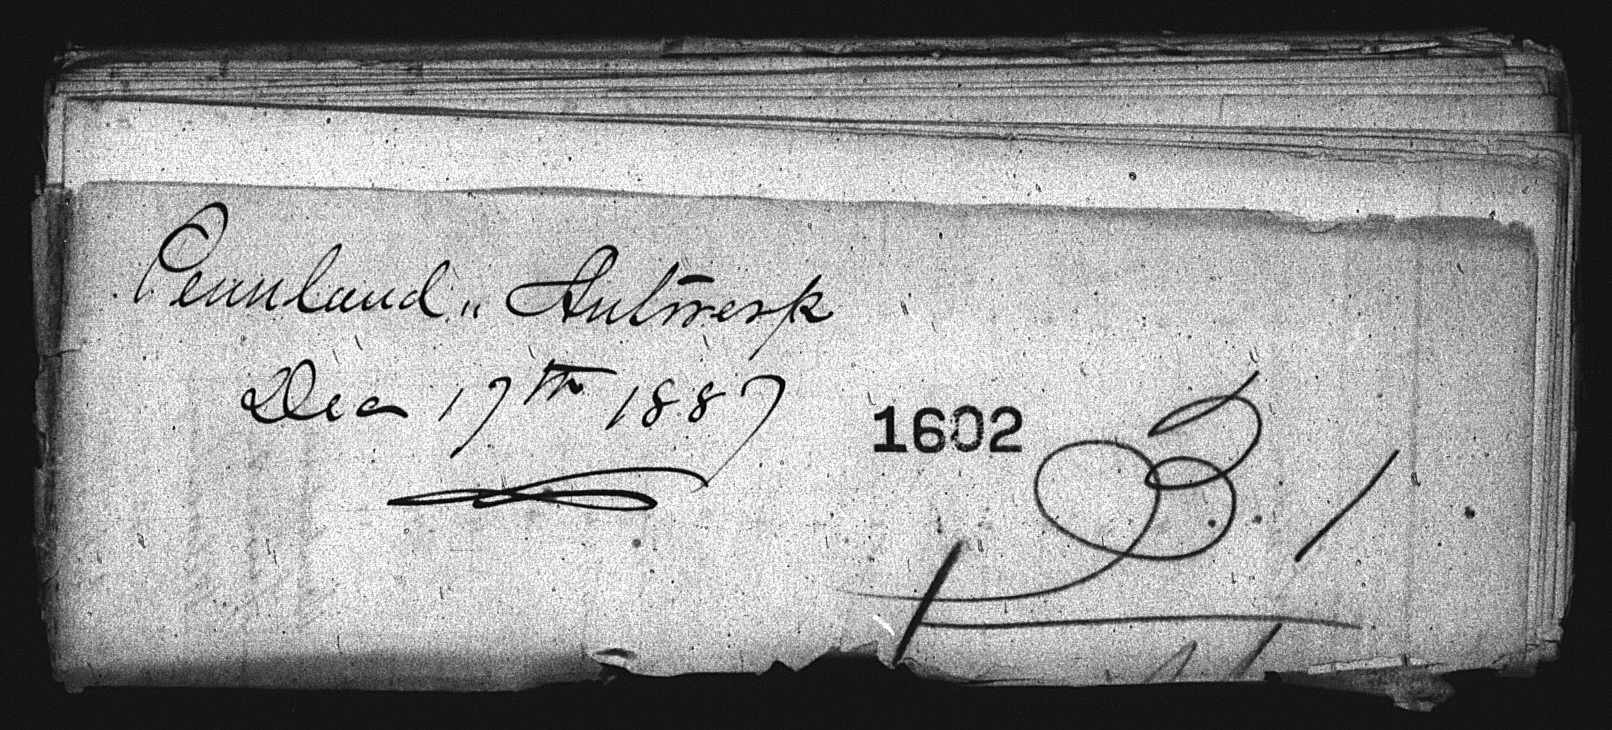 Pennland „ Antwerp
Dec 17th 1887
1602